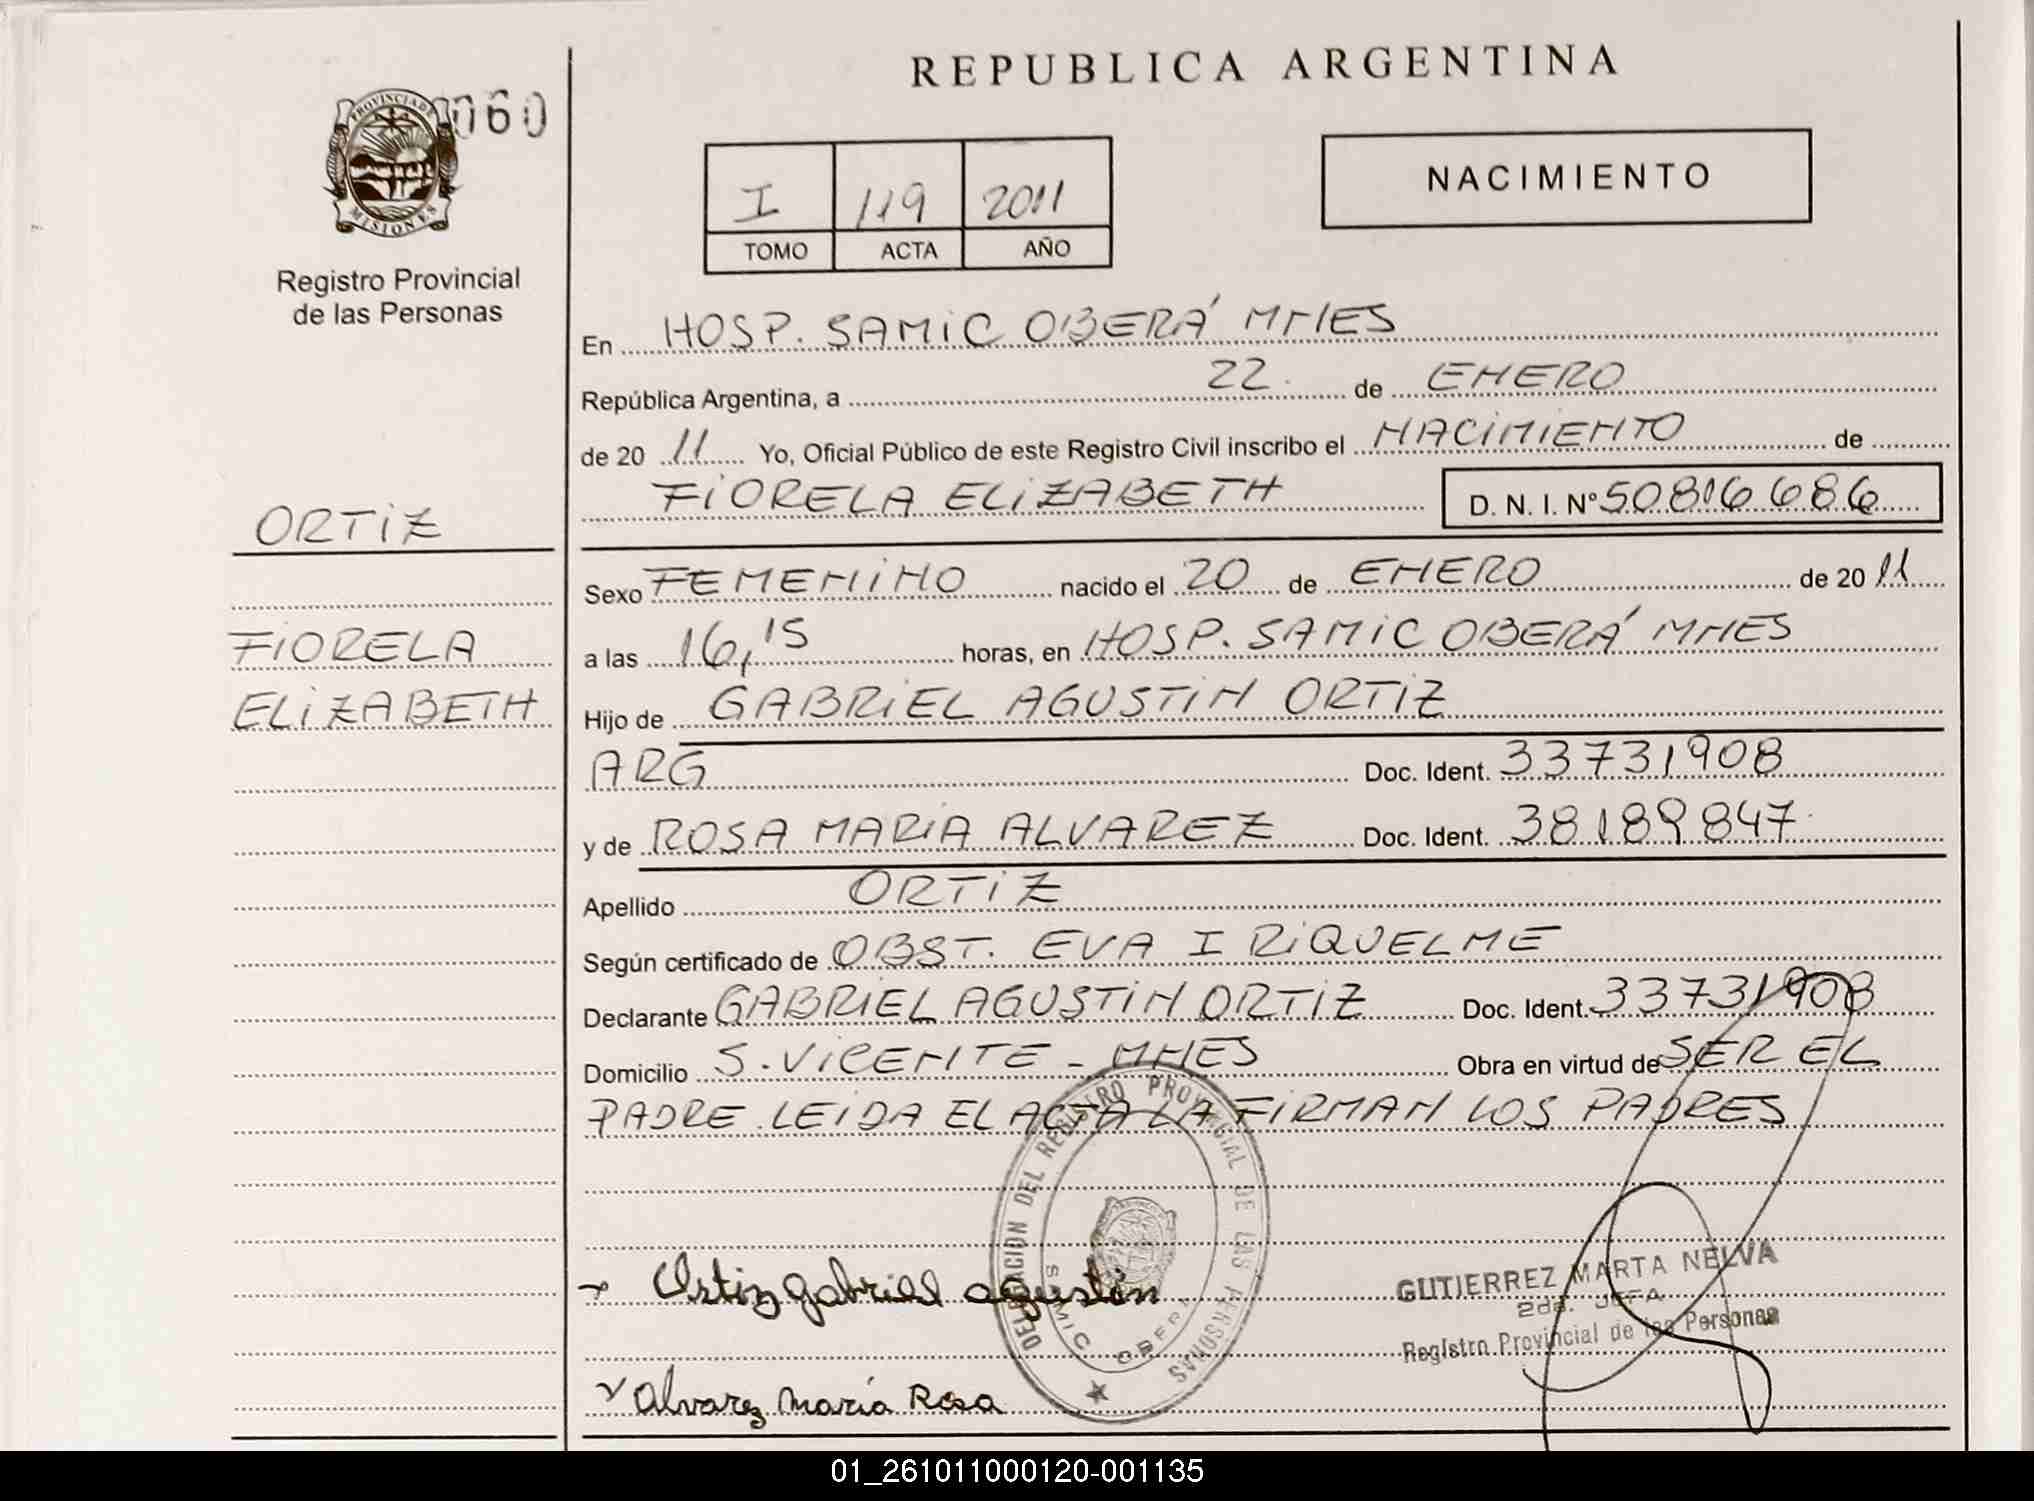 REPUBLICA ARGENTINA
PROVINCIA DE
MISIONES
060
Registro Provincial
de las Personas
I 119 2011
TOMO ACTA AÑO
NACIMIENTO
En HOSP. SAMIC OBERÁ MNES
República Argentina, a 22. de ENERO
de 2011 Yo, Oficial Público de este Registro Civil inscribo el NACIMIENTO de
FIORELA ELIZABETH D. N. I. Nº 50816686
ORTIZ
Sexo FEMENINO nacido el 20 de ENERO de 2011
FIORELA
a las 16,15 horas, en HOSP. SAMIC OBERÁ MNES
ELIZABETH
Hijo de GABRIEL AGUSTIN ORTIZ
ARG Doc. Ident. 33731908
y de ROSA MARIA ALVAREZ Doc. Ident. 38189847
Apellido ORTIZ
Según certificado de OBST. EVA I RIQUELME
Declarante GABRIEL AGUSTIN ORTIZ Doc. Ident. 33731908
Domicilio S. VICENTE - MNES Obra en virtud de SER EL
PADRE. LEIDA EL ACTA LA FIRMAN LOS PADRES
DELEGACION DEL REGISTRO PROVINCIAL DE LAS PERSONAS
SAMIC OBERA
Ortiz gabriel agustin
GUTIERREZ MARTA NELVA
2da. JEFA
Registro Provincial de las Personas
Alvarez María Rosa
01_261011000120-001135